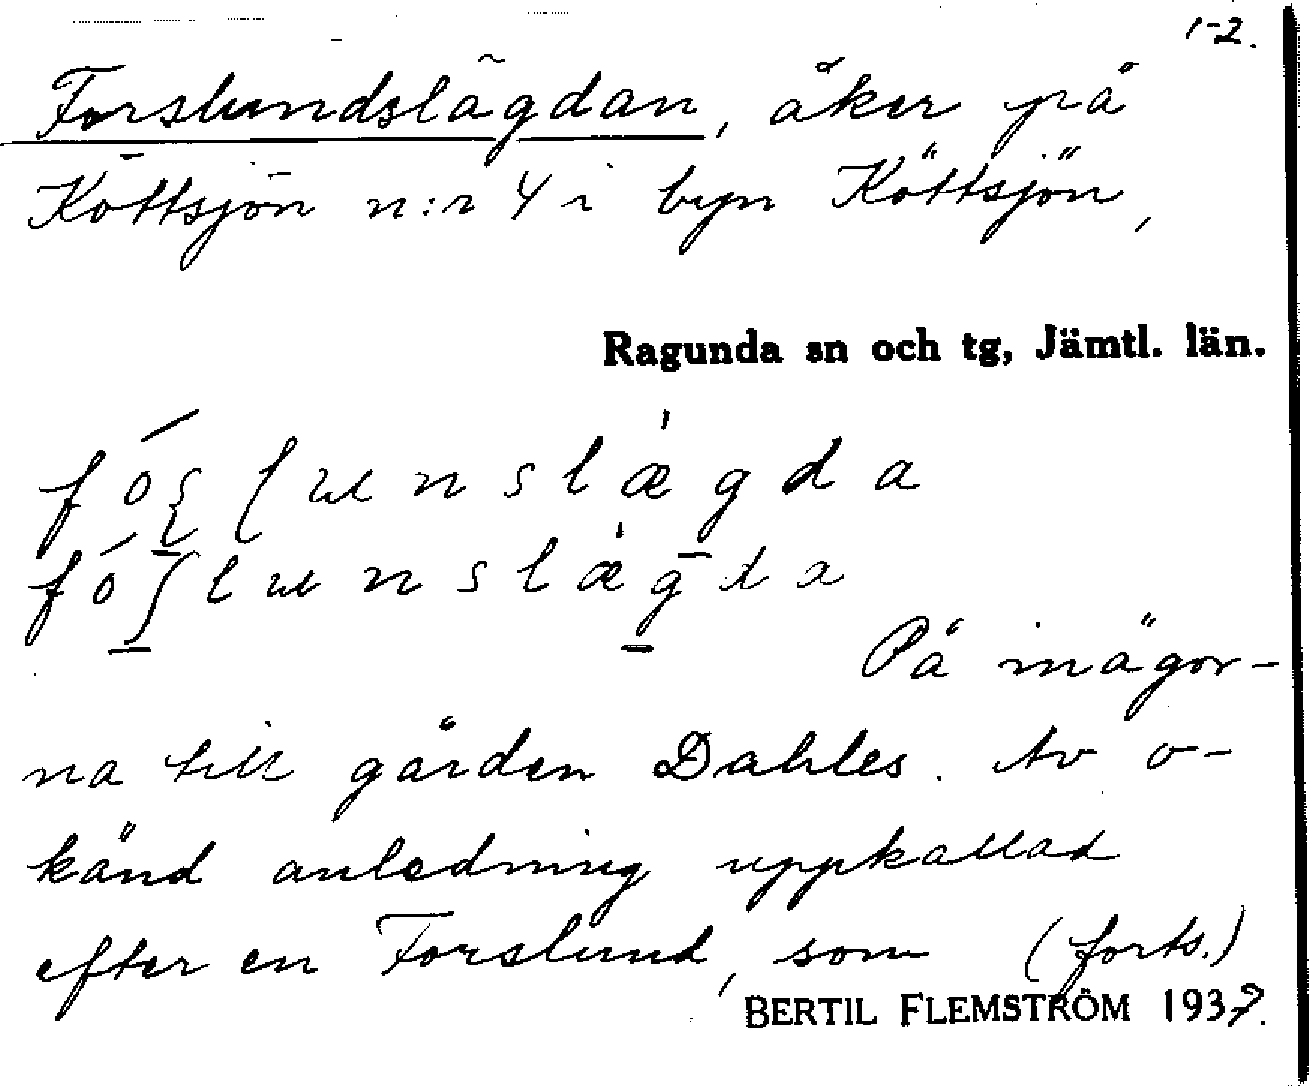 1-2.
Forslundslägdan, åker på
Köttsjön n:r 4 i byn Köttsjön,
Ragunda sn och tg, Jämtl. län.
På inägor-
na till gården Dahles. Av o-
känd anledning uppkallad
efter en Forslund, som (forts.)
BERTIL FLEMSTRÖM 1937.